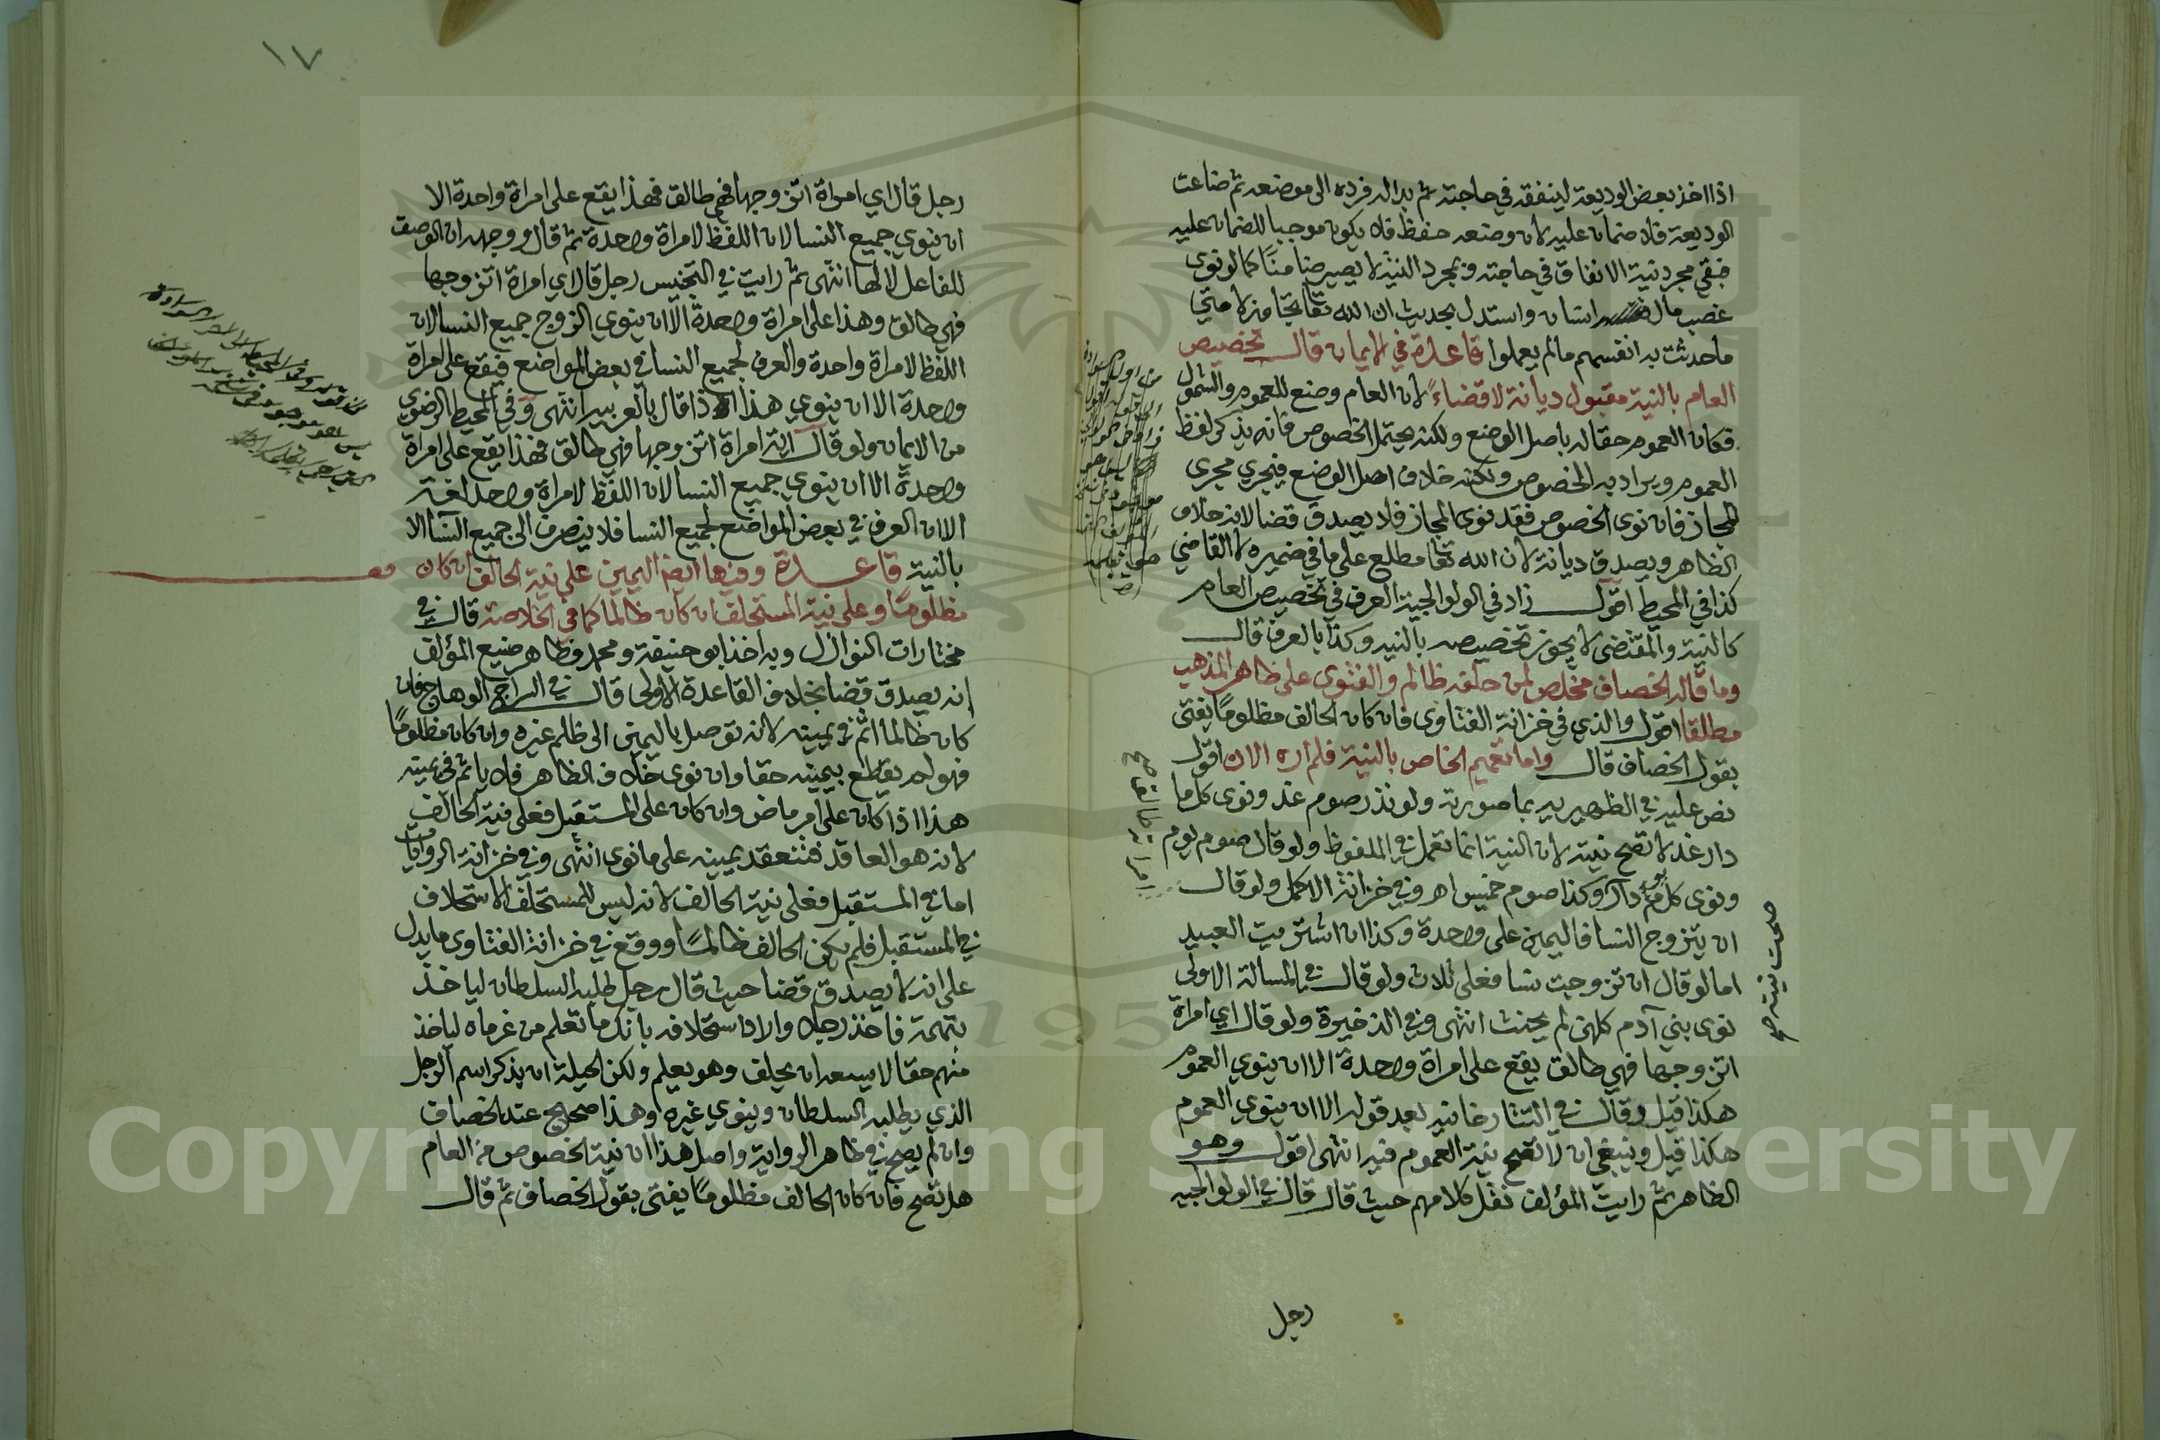 اذا اخذ بعض الوديعة لينفقه في حاجته ثم بدا له فرده الى موضعه ثم ضاعت
الوديعة فلا ضمان عليه لان وضعه حفظ فلا يكون موجبا للضمان عليه
فبقي مجرد نية الانفاق في حاجته وبمجرد النية لا يصير ضامنا كما لو نوى
غصب مال انسان واستدل بحديث ان الله تعا تجاوز لامتي
ما حدثت به انفسهم ما لم يعملوا قاعدة في الايمان قال تخصيص
العام بالنية مقبول ديانة لا قضاءً لان العام وضع للعموم والشمول
فكان العموم حقا له باصل الوضع ولكنه يحتمل الخصوص فانه يذكر لفظ
العموم ويراد به الخصوص ولكنه خلاف اصل الوضع فيجري مجرى
المجاز فان نوى الخصوص فقد نوى المجاز فلا يصدق قضا لانه خلاف
الظاهر ويصدق ديانة لان الله تعا مطلع على ما في ضميره لا القاضي
كذا في المحيط اقول زاد في الولوالجية العرف في تخصيص العام
كالنية والمقتضى لا يجوز تخصيصه بالنيه وكذا بالعرف قال
وما قاله الخصاف مخلص لمن حلفه ظالم والفتوى على ظاهر المذهب
مطلقا اقول والذي في خزانة الفتاوى فان كان الحالف مظلوما يفتى
بقول الخصاف قال واما تعميم الخاص بالنية فلم اره الان اقول
نص عليه في الظهيريه بما صورته ولو نذر صوم غد ونوى كل ما
دار غد لا تصح نيته لان النية انما تعمل في الملفوظ ولو قال صوم يوم
ونوى كل يوم دار وكذا صوم خميس اه وفي خزانة الاكمل ولو قال
ان يتزوج النسا فاليمين على واحدة وكذا ان اشتريت العبيد
اما لو قال ان تزوجت نسا فعلى ثلاث ولو قال في المسالة الاولى
نوى بني آدم كلهن لم يحنث انتهى وفي الذخيرة ولو قال اي امراة
اتزوجها فهي طالق يقع على امراة واحدة الا ان ينوي العموم
هكذا قيل وقال في التتارخانيه بعد قوله الا ان ينوي العموم
هكذا قيل وينبغي ان لا تصح نية العموم فيه انتهى اقول وهو
الظاهر ثم رايت المؤلف نقل كلامهم حيث قال قال في الولوالجيه
صحت نيته صح
رجل
١٧
رجل قال اي امراة اتزوجها فهي طالق فهذا يقع على امراة واحدة الا
ان ينوي جميع النسا لان اللفظ لامراة واحدة ثم قال ووجهه ان الوصف
للفاعل لا لها انتهى ثم رايت في التجنيس رجل قال اي امراة اتزوجها
فهي طالق وهذا على امراة واحدة الا ان ينوي الزوج جميع النسا لان
اللفظ لامراة واحدة والعرف لجميع النسا في بعض المواضع فيقع على امراة
واحدة الا ان ينوي هذا اذا قال بالعربيه انتهى وفي المحيط الرضوي
من الايمان ولو قال اية امراة اتزوجها فهي طالق فهذا يقع على امراة
واحدة الا ان ينوي جميع النسا لان اللفظ لامراة واحد لغة
الا ان العرف في بعض المواضع لجميع النسا فلا ينصرف الى جميع النسا الا
بالنية قاعدة وفيها ايضا اليمين على نية الحالف ان كان
مظلوما وعلى نية المستحلف ان كان ظالما كما في الخلاصة قال في
مختارات النوازل وبه اخذ ابو حنيفة ومحمد وظاهر صنيع المؤلف
انه يصدق قضا بخلاف القاعدة الاولى قال في السراج الوهاج فان
كان ظالما اثم في يمينه لانه توصل باليمين الى ظلم غيره وان كان مظلوما
فهو لم يقطع بيمينه حقا وان نوى خلاف الظاهر فلا ياثم في يمينه
هذا اذا كان على امر ماض وان كان على المستقبل فعلى نية الحالف
لانه هو العاقد فتنعقد يمينه على ما نوى انتهى وفي خزانة الروايات
اما في المستقبل فعلى نية الحالف لانه ليس للمستحلف الاستحلاف
في المستقبل فلم يكن الحالف ظالما ووقع في خزانة الفتاوى ما يدل
على انه لا يصدق قضا حيث قال رجل طلبه السلطان لياخذ
بتهمة فاخذ رجلا واراد استحلافه بانك ما تعلم من غرماه لياخذ
منهم حقا لا يسعه ان يحلف وهو يعلم ولكن الحيلة ان يذكر اسم الرجل
الذي يطلبه السلطان وينوي غيره وهذا صحيح عند الخصاف
وان لم يصح في ظاهر الرواية واصل هذا ان نية الخصوص في العام
هل تصح فان كان الحالف مظلوما يفتى بقول الخصاف ثم قال
Copyright © King Saud University
195